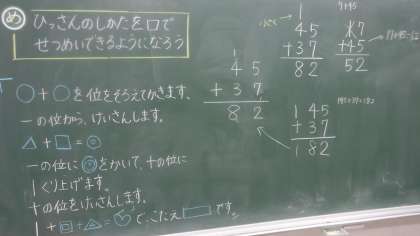 め ひっさんのしかたを口で
せつめいできるようになろう
○+○を位をそろえてかきます。
一の位から、けいさんします。
△+□=◎
一の位に◎をかいて、十の位に
1くり上げます。
十の位をけいさんします。
1+□+△=○で、こたえ□です。
1
45
+37
82
1
45
+37
82
7+45
7
+45
52
145
+37
182
145+37=182